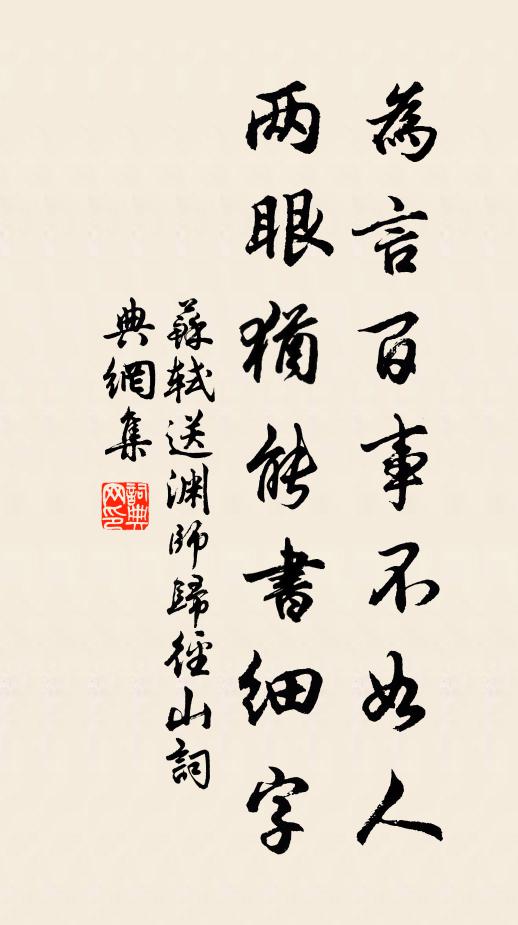 為言百事不如人
两眼猶能書細字
蘇軾送渊師歸徑山詞
典網集
詞典網印